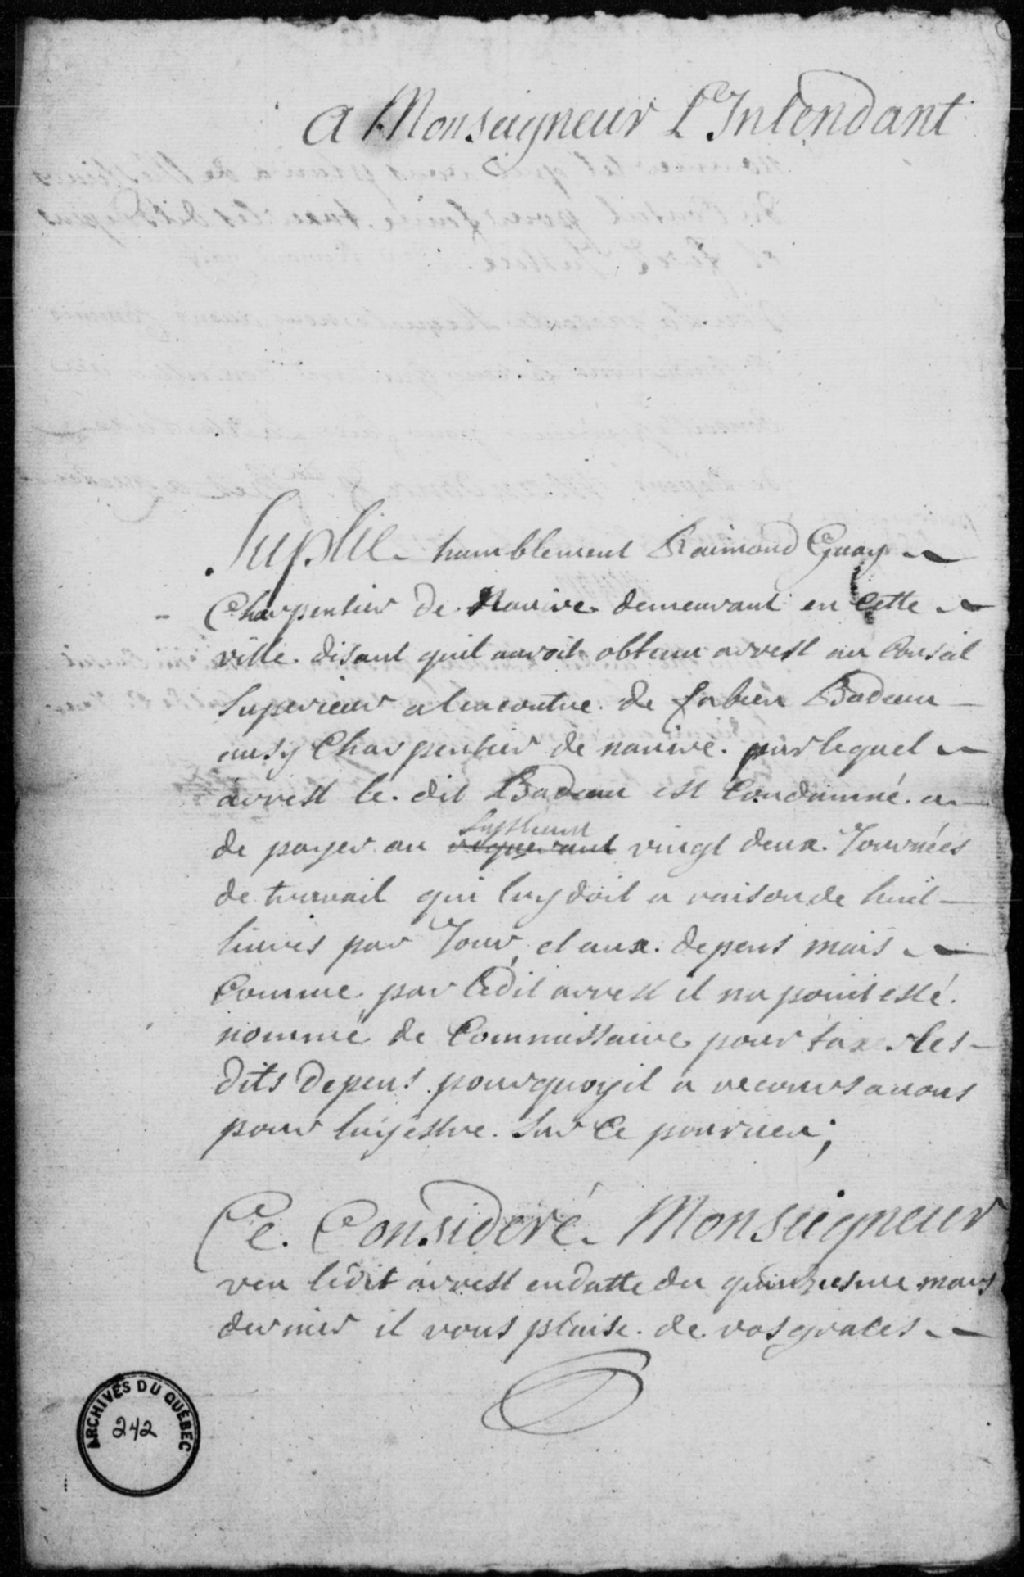 A Monseigneur L'Intendant
Suplie humblement Raimond Guay
Charpentier de Navire demeurant en Cette
ville disant quil auroit obtenu arrest au Conseil
Superieur a lencontre de fabien Badeau
aussy Charpentier de navire par lequel
arrest le dit Badeau est Condamné a
de payer au requerant Supliant vingt deux Journées
de travail qui luy doit a raison de huit
livres par Jour et aux depens mais
Comme par Ledit arrest il na point esté
nommé de Commissaire pour taxer les
dits depens pourquoy il a recours a vous
pour luy estre Sur Ce pourveu;
Ce Consideré Monseigneur
veu ledit arrest en datte du quinziesme mars
dernier il vous plaise de vos graces
ARCHIVES DU QUÉBEC
242